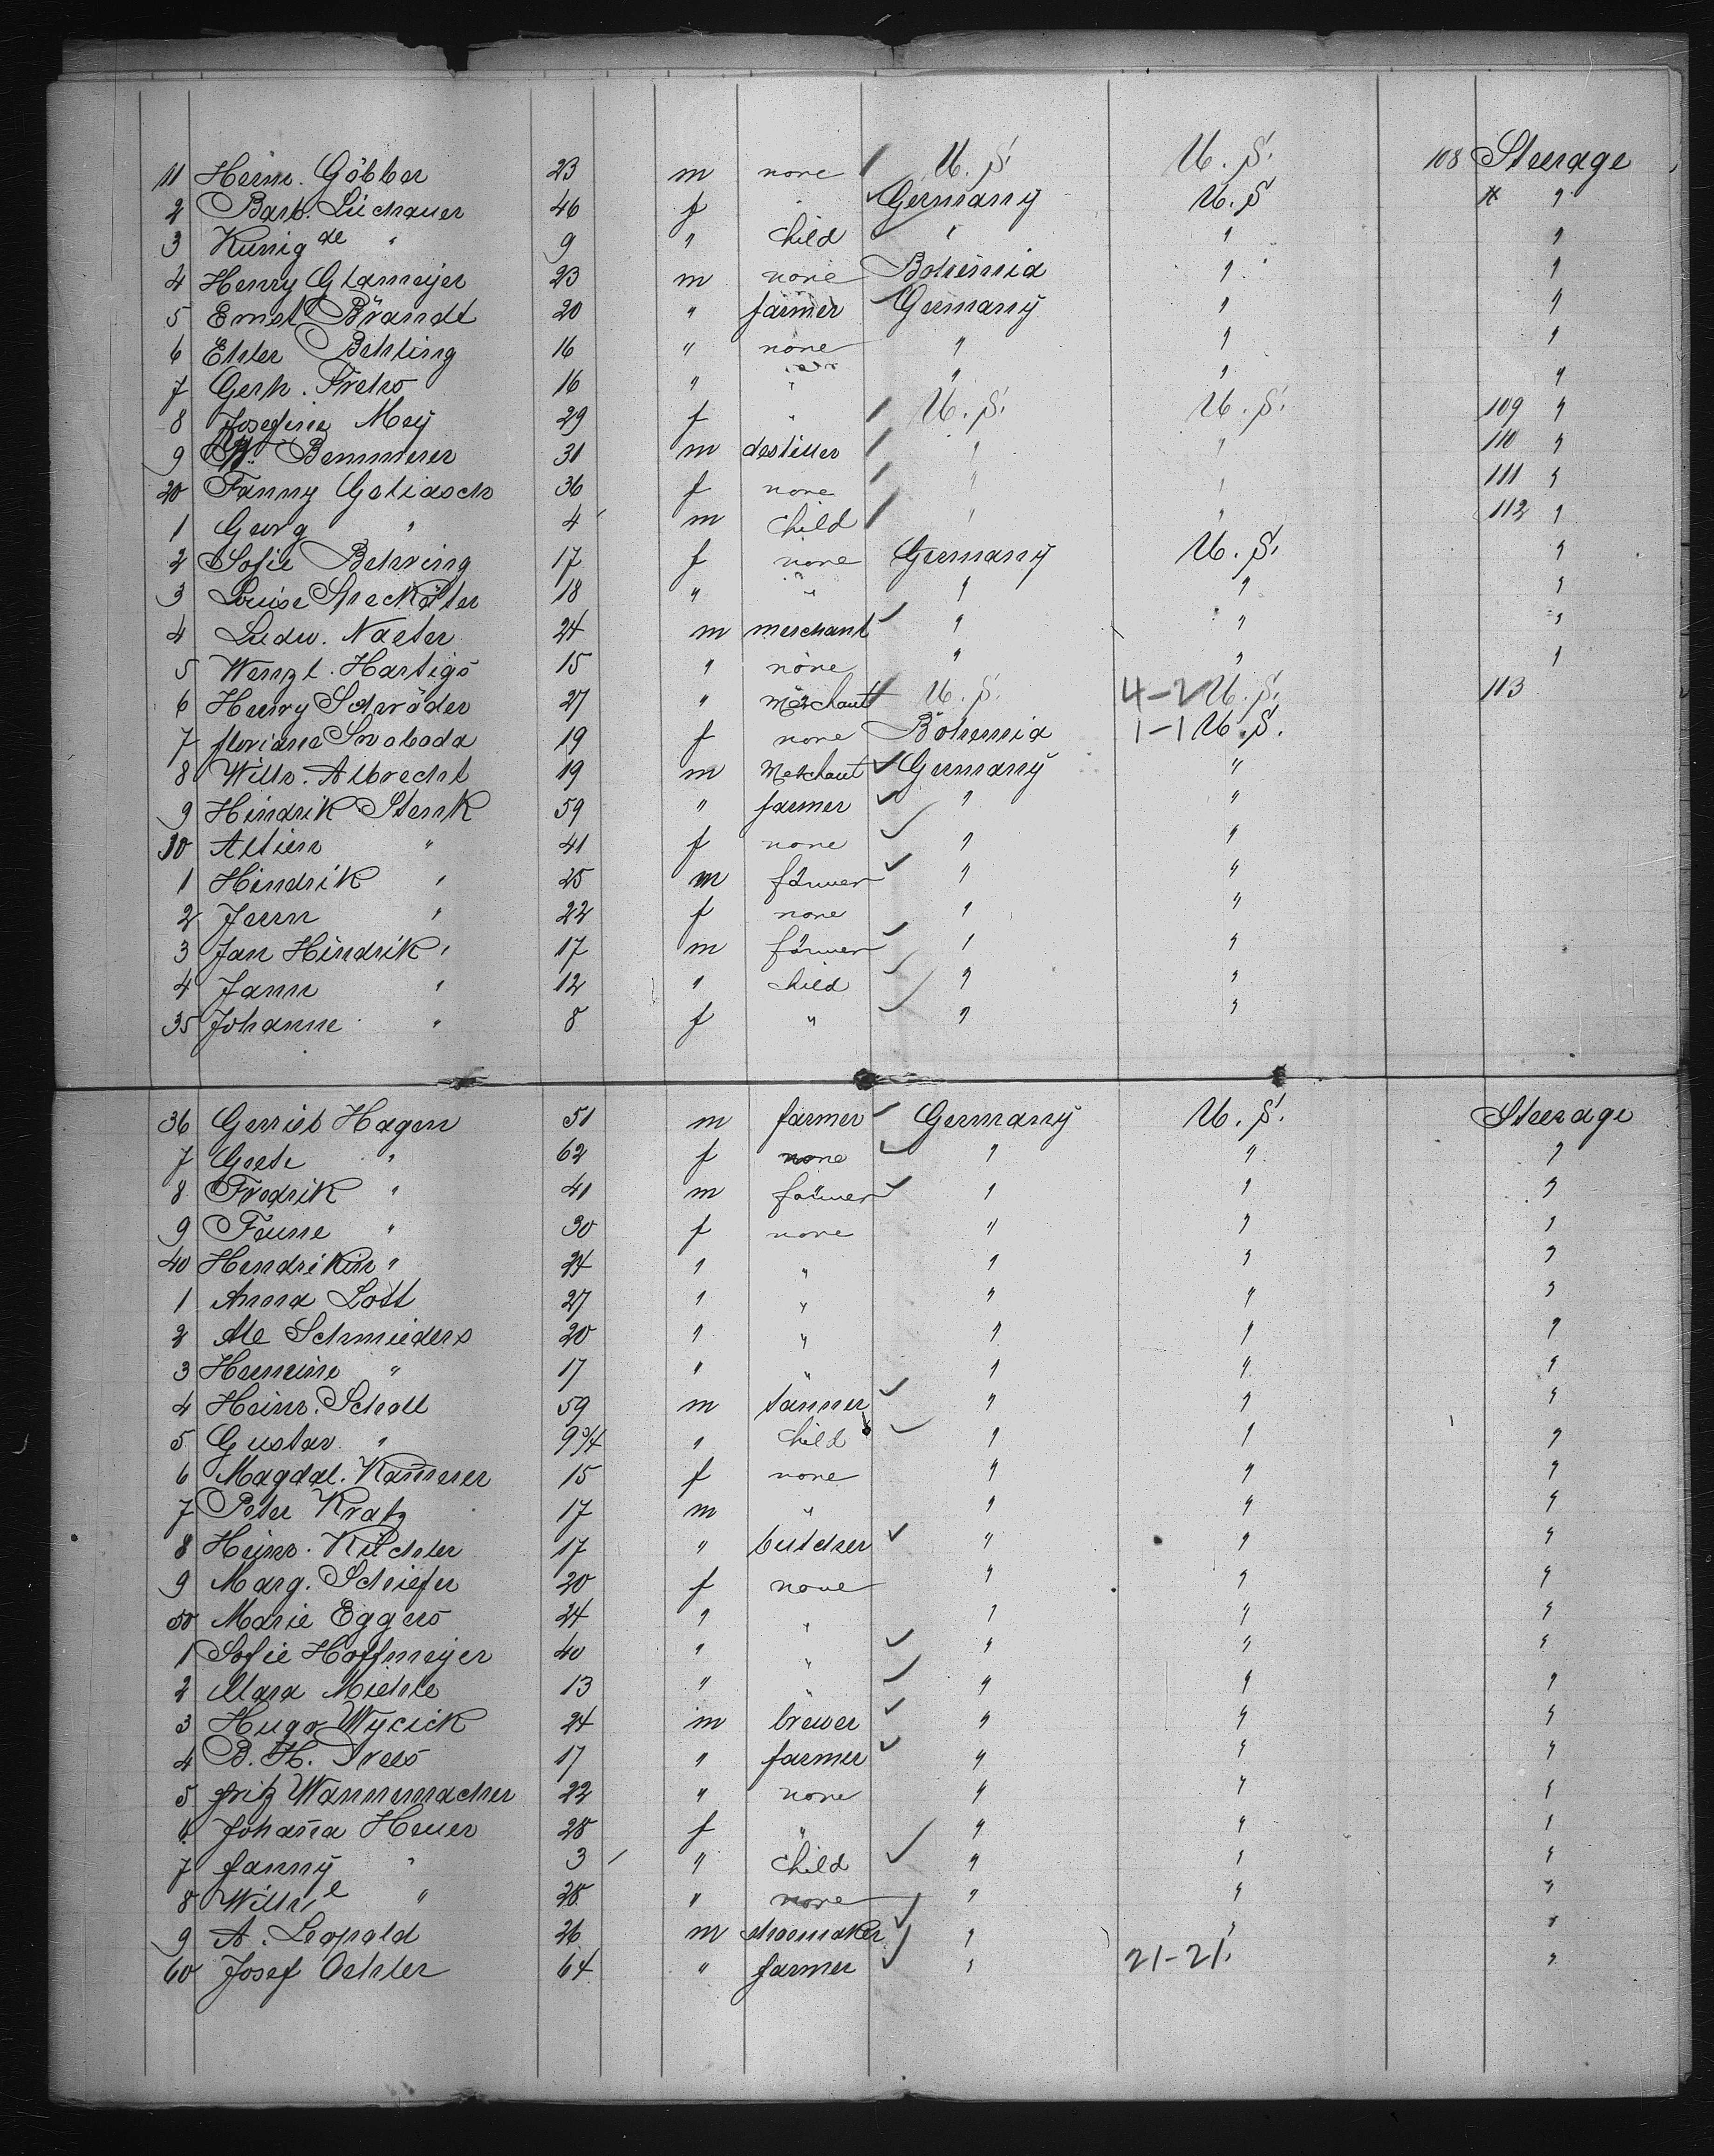 11 Herm. Göbber 23 m none U. S. U. S. 108 Steerage
2 Barb. Lüchauer 46 f " Germany U. S "
3 Kunig de " 9 " child " " "
4 Henry Glameyer 23 m none Bohemia " "
5 Ernst Brandt 20 " farmer Germany " "
6 Ehler Behling 16 " none " " "
7 Gerh. Frehs 16 " " " " "
8 Josefine Mey 29 f " U. S. U. S. 109 "
9 Bemmerer 31 m destiller " " 110 "
20 Fanny Goliasch 36 f none " " 111 "
1 Georg " 4 m child " " 112 "
2 Sofie Behring 17 f none Germany U. S. "
3 Louise Specköter 18 " " " " "
4 Ludw. Naeter 24 m merchant " " "
5 Wenzl. Hartigs 15 " none " " "
6 Henry Schröder 27 " Merchant U. S. 4-2 U. S. 113
7 floriane Svoboda 19 f none Bohemia 1-1 U. S.
8 Wilh. Albrecht 19 m Merchant Germany "
9 Hindrik Stenk 59 " farmer " "
30 Altien " 41 f none " "
1 Hindrik " 25 m farmer " "
2 Jenn " 22 f none " "
3 Jan Hindrik " 17 m farmer " "
4 Jann " 12 " child " "
35 Johanne " 8 f " " "
36 Gerriet Hagen 51 m farmer Germany U. S. Steerage
7 Geete " 62 f none " " "
8 Fredrik " 41 m farmer " " "
9 " 30 f none " " "
40 Hendrikin " 24 " " " " "
1 Anna Lott 27 " " " " "
2 Ale Schmieders 20 " " " " "
3 Hermine " 17 " " " " "
4 Heinr. Scholl 59 m tanner " " "
5 Gustav " 9 3/4 " child " " "
6 Magdal. Kam̄erer 15 f none " " "
7 Peter Kratz 17 m " " " "
8 Heinr. Küchler 17 " butcher " " "
9 Marg. Schiefer 20 f none " " "
50 Marie Eggers 24 " " " " "
1 Sofie Hoffmeyer 40 " " " " "
2 Mara Miehle 13 " " " " "
3 Hugo Wycick 24 m brewer " " "
4 B. H. Trees 17 " farmer " " "
5 fritz Wannemacher 22 " none " " "
6 Johan̄a Heuer 28 f " " " "
7 fanny " 3 " child " " "
8 Wilh e " 28 " none " " "
9 A. Leopold 26 m shoemaker " " "
60 Josef Oehler 64 " farmer " 21-21 "